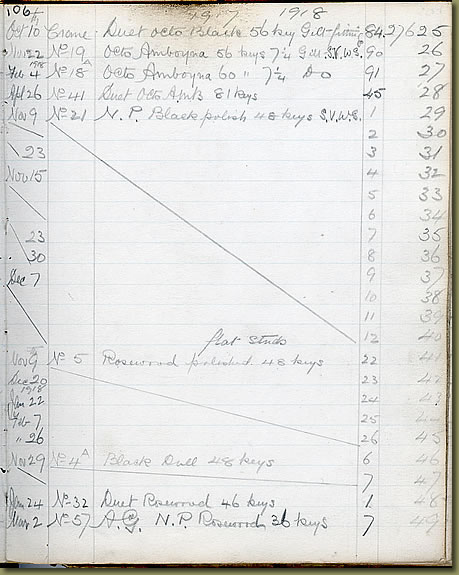 106 1917 1918
Oct 10 Crane Duet Octo Black 56 key Gilt fittings 84 27625
Nov 22 No 19 Octo Amboyna 56 keys 7¼ Gilt S.V.W.G. 90 26
1918
Feb 4 No 18A Octo Amboyna 60 " 7¼ Do 91 27
Apl 26 No 41 Duet Octo Amb 81 keys 45 28
Nov 9 No 21 N.P. Black polish 48 keys S.V.W.G. 1 29
2 30
23 3 31
Nov 15 4 32
5 33
6 34
23 7 35
30 8 36
Dec 7 9 37
10 38
11 39
flat studs 12 40
Nov 9 No 5 Rosewood polished 48 keys 22 41
Dec 20 23 42
1918
Jan 22 24 43
Feb 7 25 44
" 26 26 45
Nov 29 No 4A Black Dull 48 keys 6 46
7 47
Jan 24 No 32 Duet Rosewood 46 keys 1 48
Mar 2 No 57 A.G. N.P. Rosewood 36 keys 7 49